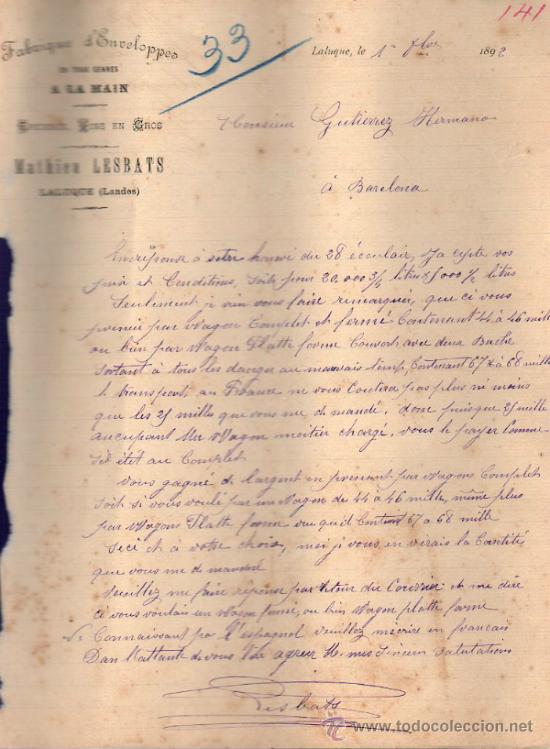 141
33
Fabrique d'Enveloppes
EN TOUS GENRES
A LA MAIN
VINS EN GROS
Mathieu LESBATS
LALUQUE (Landes)
Laluque, le 1er 1892
Monsieur Gutierrez Hermano
à Barcelona
En reponse à votre honoré du 28 écoulair, J'a cepte vos
prix et Conditions, soit pour 20.000 3/4 litres 5000 1/2 litres
Seulement je vien vous faire remarquer, que ci vous
prenié par Wagon Complet et fermé Contenant 44 à 46 mille
ou bien par Wagon Platte forme Couvert avec deux Bache
à tous les danger au mauvais temp, Contenant 67 à 68 mille
le transport, au France ne vous Coutera pas plus ni moins
que les 25 mille que vous me de mandé, donc puisque 25 mille
aucupant Un Wagon moitier chargé, vous le payer Comme
s'il étet au Complet
Vous gagné de l'argent en prenant par Wagons Complet
soit si vous voulé par un Wagon de 44 à 46 mille, même plus
par Wagons Platte forme vu qu'il Contient 67 à 68 mille
Seci et à votre chois, moi je vous en verais la Cantité
que vous me de manderé
Veuillez me faire réponse par retour du Courrier et me dire
ci vous voulais un Wagon fermé, ou bien Wagon platte forme
Ne Connaissant pas l'espagnol veuillez mecrire en francais
Dan Lattante de vous lire agréer M. mes Sincere Salutations
Lesbats
www.todocoleccion.net